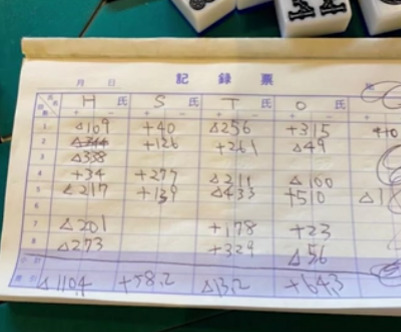 記録票
月 日
H 氏 S 氏 T 氏 O 氏
+ − + − + − + −
1 △109 +40 △256 +315
2 +126 +261 △49
3 △338
4 +34 +277 △211 △100
5 △217 +139 △433 +510
6
7 △201 +178 +23
8 △273 +329 △56
△1104 +582 △132 +643